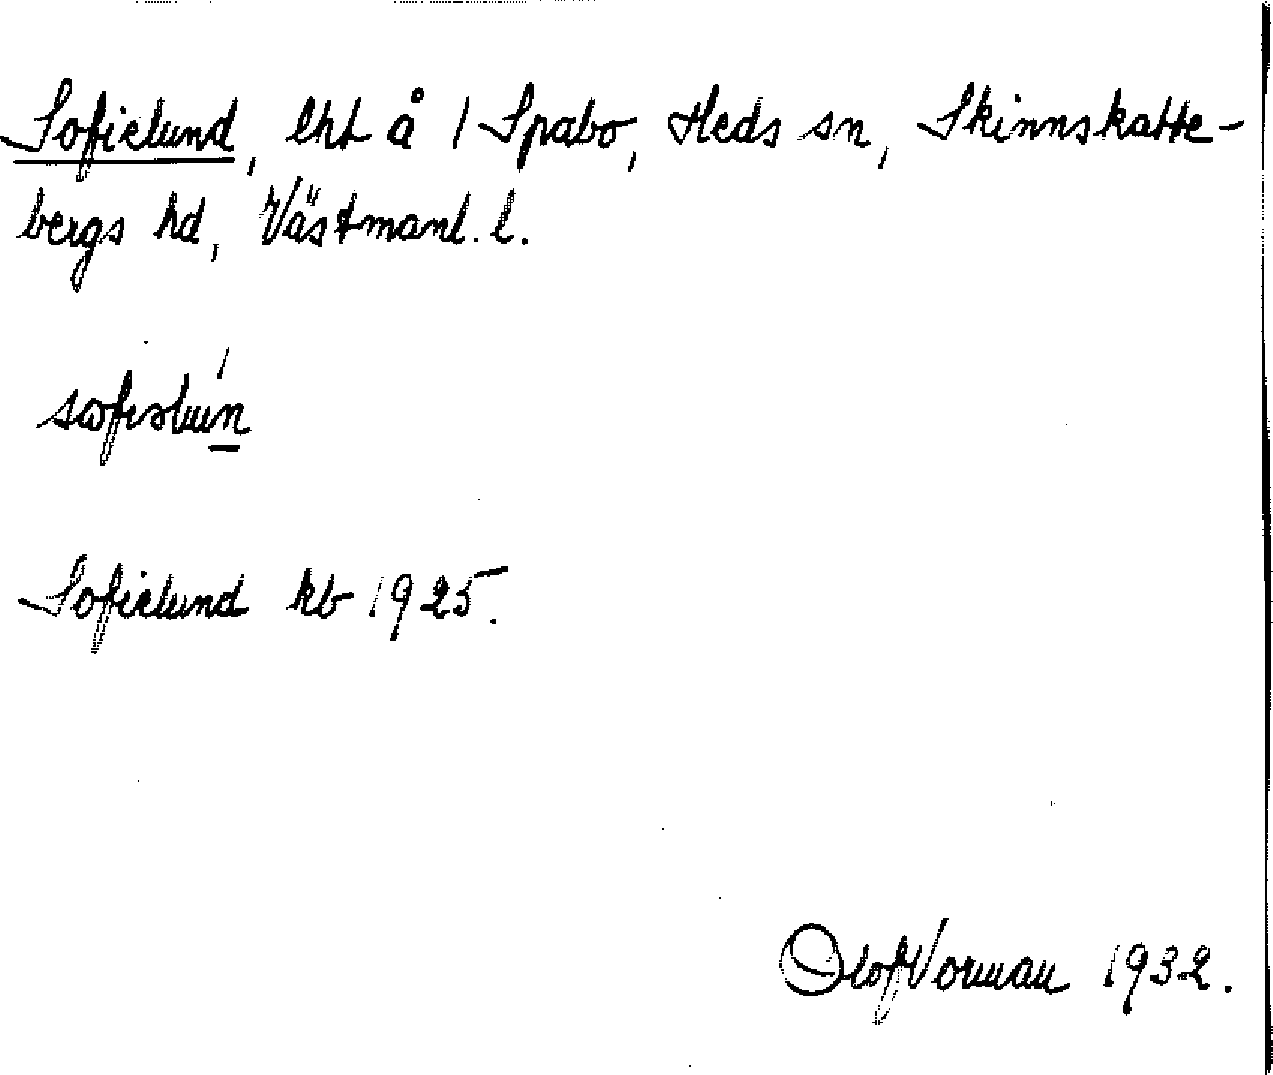 Sofielund, lht å 1 Spabo, Heds sn, Skinnskatte-
bergs hd, Västmanl. l.
Sofielund kb 1925.
Olof Norman 1932.